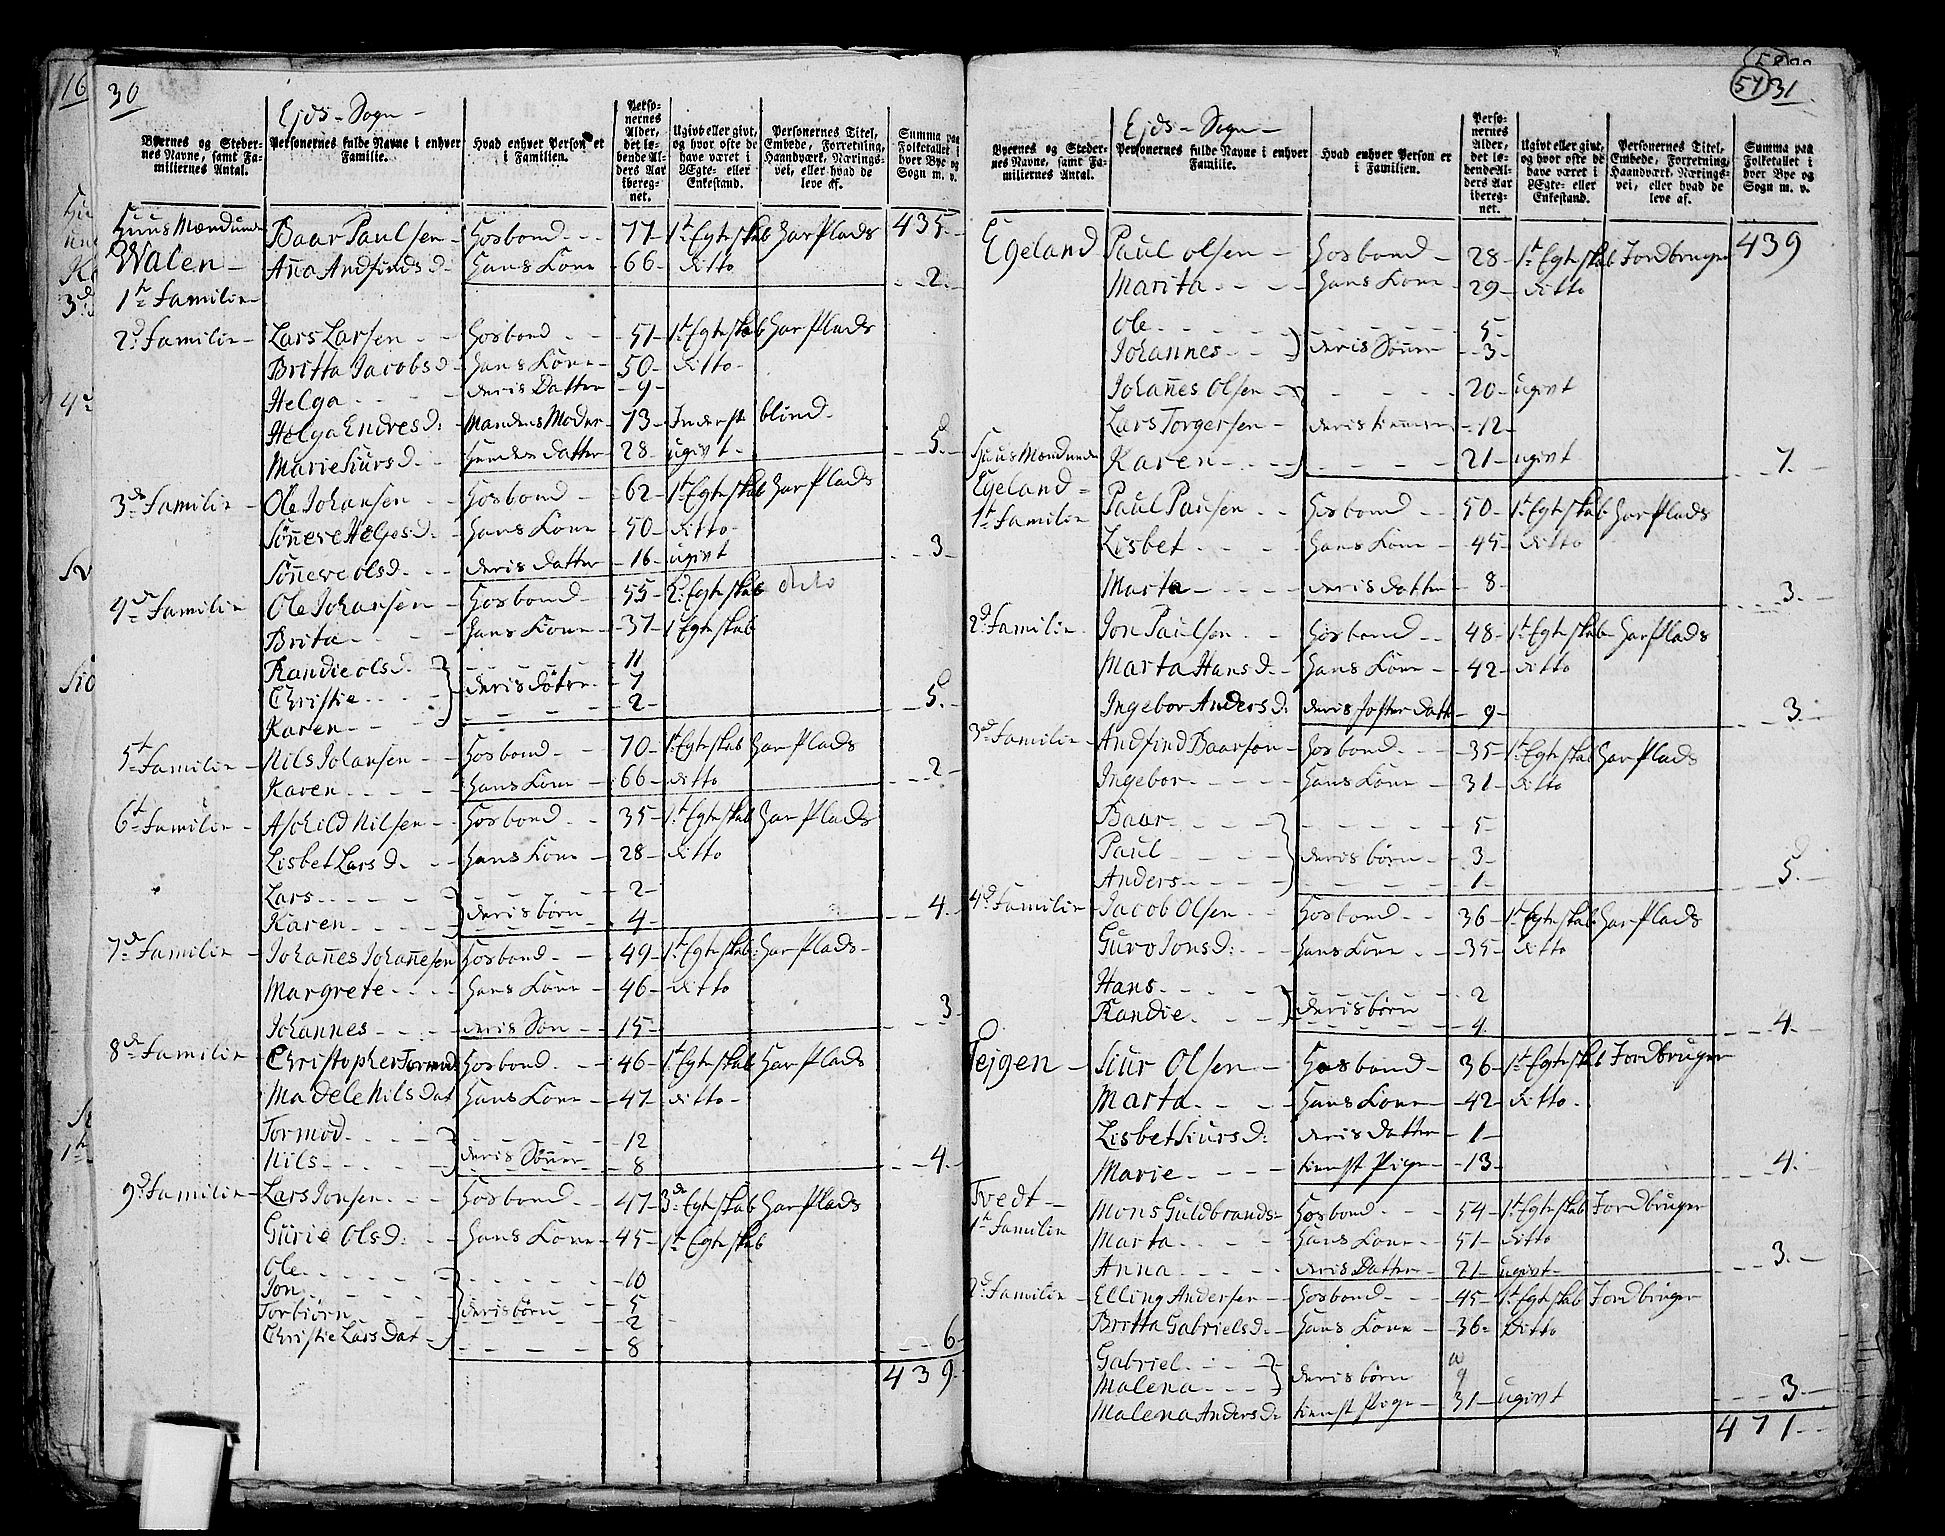 30
Ejds - Sogn -
Byernes og Steder-nes Navne, samt Fa-miliernes Antal. Personernes fulde Navne i enhver Familie. Hvad enhver Person er i Familien. Perso-nernes Alder, det le-bende Al-ders Aar ibereg-net. Ugivt eller givt, og hvor ofte de have været i Ægte- eller Enkestand. Personernes Titel, Embede, Forretning, Haandværk, Nærings-vei, eller hvad de leve af. Summa paa Folketallet i hver Bye og Sogn m. v.
Huus Mænd und Baar Paulsen - Hosbond - - - 77 - 1te Egteskab har Plads 435
Walen - Anna Andfinds d. - Hans Kone - 66 - ditto - - 2 -
1te Familie -
2d Familie - Lars Larsen - - Hosbond - - 51 - 1te Egteskab har Plads
Britta Jacobs d. - Hans Kone - 50 - ditto -
Helga - - - - deris Datter - 9 -
Helga Endres d: - Mandens Moder - 73 - Inderst blind -
Marie Siurs d. - - datter - 28 - ugivt - - - 5 -
3de Familie - Ole Johansen - - Hosbond - - 62 - 1te Egteskab har Plads
Sønneve Helges d. - Hans Kone - 50 - ditto -
Sønneve ols d. - - deris datter - 16 - ugivt - - 3 -
4de Familie Ole Johansen - Hosbond - - 55 - 2. Egteskab dito
Brita - - - - Hans Kone - 37 - 1 Egteskab
Randie ols d. - - 11
Christie - - - deris døtre - 7
Karen - - - 2 - - - 5 -
5te Familie - Nils Johansen - - Hosbond - - 70 - 1te Egteskab har Plads
Karen - - - - Hans Kone - 66 - ditto - - 2 -
6te Familie - Aschild Nilsen - - Hosbond - - 35 - 1te Egteskab har Plads
Lisbet Lars d. - - Hans Kone - 28 - ditto
Lars - - - - - 2 -
Karen - - - - deris børn - 4 - - - 4 -
7de Familie - Johannes Johannesen Hosbond - - 49 - 1te Egteskab har Plads -
Margrete - - - Hans Kone - 46 - ditto
Johannes - - - deris Søn - - 15 - - - 3
8de Familie - Christopher Tormod Hosbond - - 46 - 1te Egteskab har Plads
Madele Nils Dat Hans Kone - 47 - ditto -
Tormod - - - - 12
Nils - - - - deris Sønner - 8 - - 4 -
9d Familie - Lars Jonsen - - Hosbond - - 47 - 3de Egteskab har Plads
Gurie Ols d. - - Hans Kone - 45 - 1te Egteskab
Ole - - - - - 10
Jon - - - - - 5
Torbiørn - - - deris børn - 2
Christie Lars Dat - - 8 - - 6 -
439 -
57 31
Ejds - Sogn -
Byernes og Steder-nes Navne, samt Fa-miliernes Antal. Personernes fulde Navne i enhver Familie. Hvad enhver Person er i Familien. Perso-nernes Alder, det le-bende Al-ders Aar ibereg-net. Ugivt eller givt, og hvor ofte de have været i Ægte- eller Enkestand. Personernes Titel, Embede, Forretning, Haandværk, Nærings-vei, eller hvad de leve af. Summa paa Folketallet i hver Bye og Sogn m. v.
Egeland Paul olsen - Hosbond - 28 - 1te Egteskab Jordbruger 439
Marita - - - - Hans Kone - 29 - ditto
Ole - - - - - 5 -
Johannes - - - deris Sønner - 3 -
Johannes Olsen - - - - 20 - ugivt
Lars Torgersen - deris - 12 -
Huus Mænd unde Karen - - - - - - 21 - ugivt - - 7 -
Egeland -
1te Familie Paul Paulsen - - Hosbond - 50 - 1te Egteskab har Plads
Lisbet - - - - Hans Kone - 45 - ditto
Marta - - - - deris datter - 8 - - - 3 -
2d Familie - Jon Paulsen - - Hosbond - - 48 - 1te Egteskab har Plads
Marta Hans d. - Hans Kone - 42 - ditto
Ingebor Anders d: deris foster Datt - 9 - - - 3 -
3d Familie - Andfind Baarson - Hosbond - - - 35 - 1te Egteskab har Plads
Ingebor - - - - Hans Kone - 31 - ditto
Baar - - - - - 5 -
Paul - - - - deris børn - 3 -
Anders - - - - 1 - - - 5 -
4d Familie - Jacob Olsen - - Hosbond - - 36 - 1te Egteskab har Plads
Guro Jons d: - - Hans Kone - - 35 - ditto
Hans - - - - - 2
Randie - - - deris børn 4 - - 4 -
Tejgen - Siur Olsen - - Hosbond - 36 - 1te Egteskab Jordbruger
Marta - - - - Hans Kone - 42 - ditto -
Lisbet Siurs d: deris datter - 1 -
Marie - - - - tienst Pige - 13 - - - 4 -
Tvedt -
1te Familie Mons Guldbrands: - Hosbond - - - 54 - 1te Egteskab Jordbruger
Marta - - - - Hans Kone - 51 - ditto
Anna - - - - deris Datter - 21 - ugivt - - - 3 -
2d Familie - Elling Andersen - Hosbond - - 45 - 1te Egteskab Jordbruger
Britta Gabriels d. - Hans Kone - 36 - ditto
Gabriel - - - -
Malena - - - deris børn 9
Malena Anders d. tienst Pige - 31 - ugivt - - - 3 -
471 - -